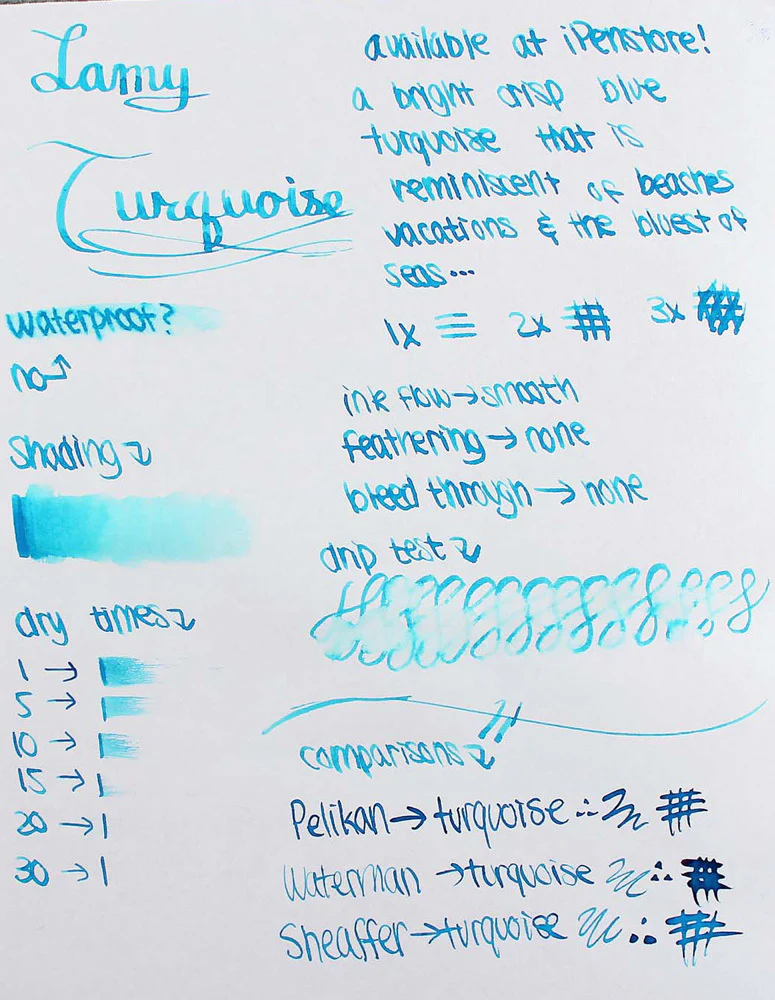 Lamy
Turquoise
available at iPenstore!
a bright crisp blue
turquoise that is
reminiscent of beaches
vacations & the bluest of
seas...
1x 2x 3x
waterproof?
no
shading
ink flow → smooth
feathering → none
bleed through → none
drip test
dry times
1 →
5 →
10 →
15 →
20 →
30 →
comparisons
Pelikan → turquoise
Waterman → turquoise
Sheaffer → turquoise